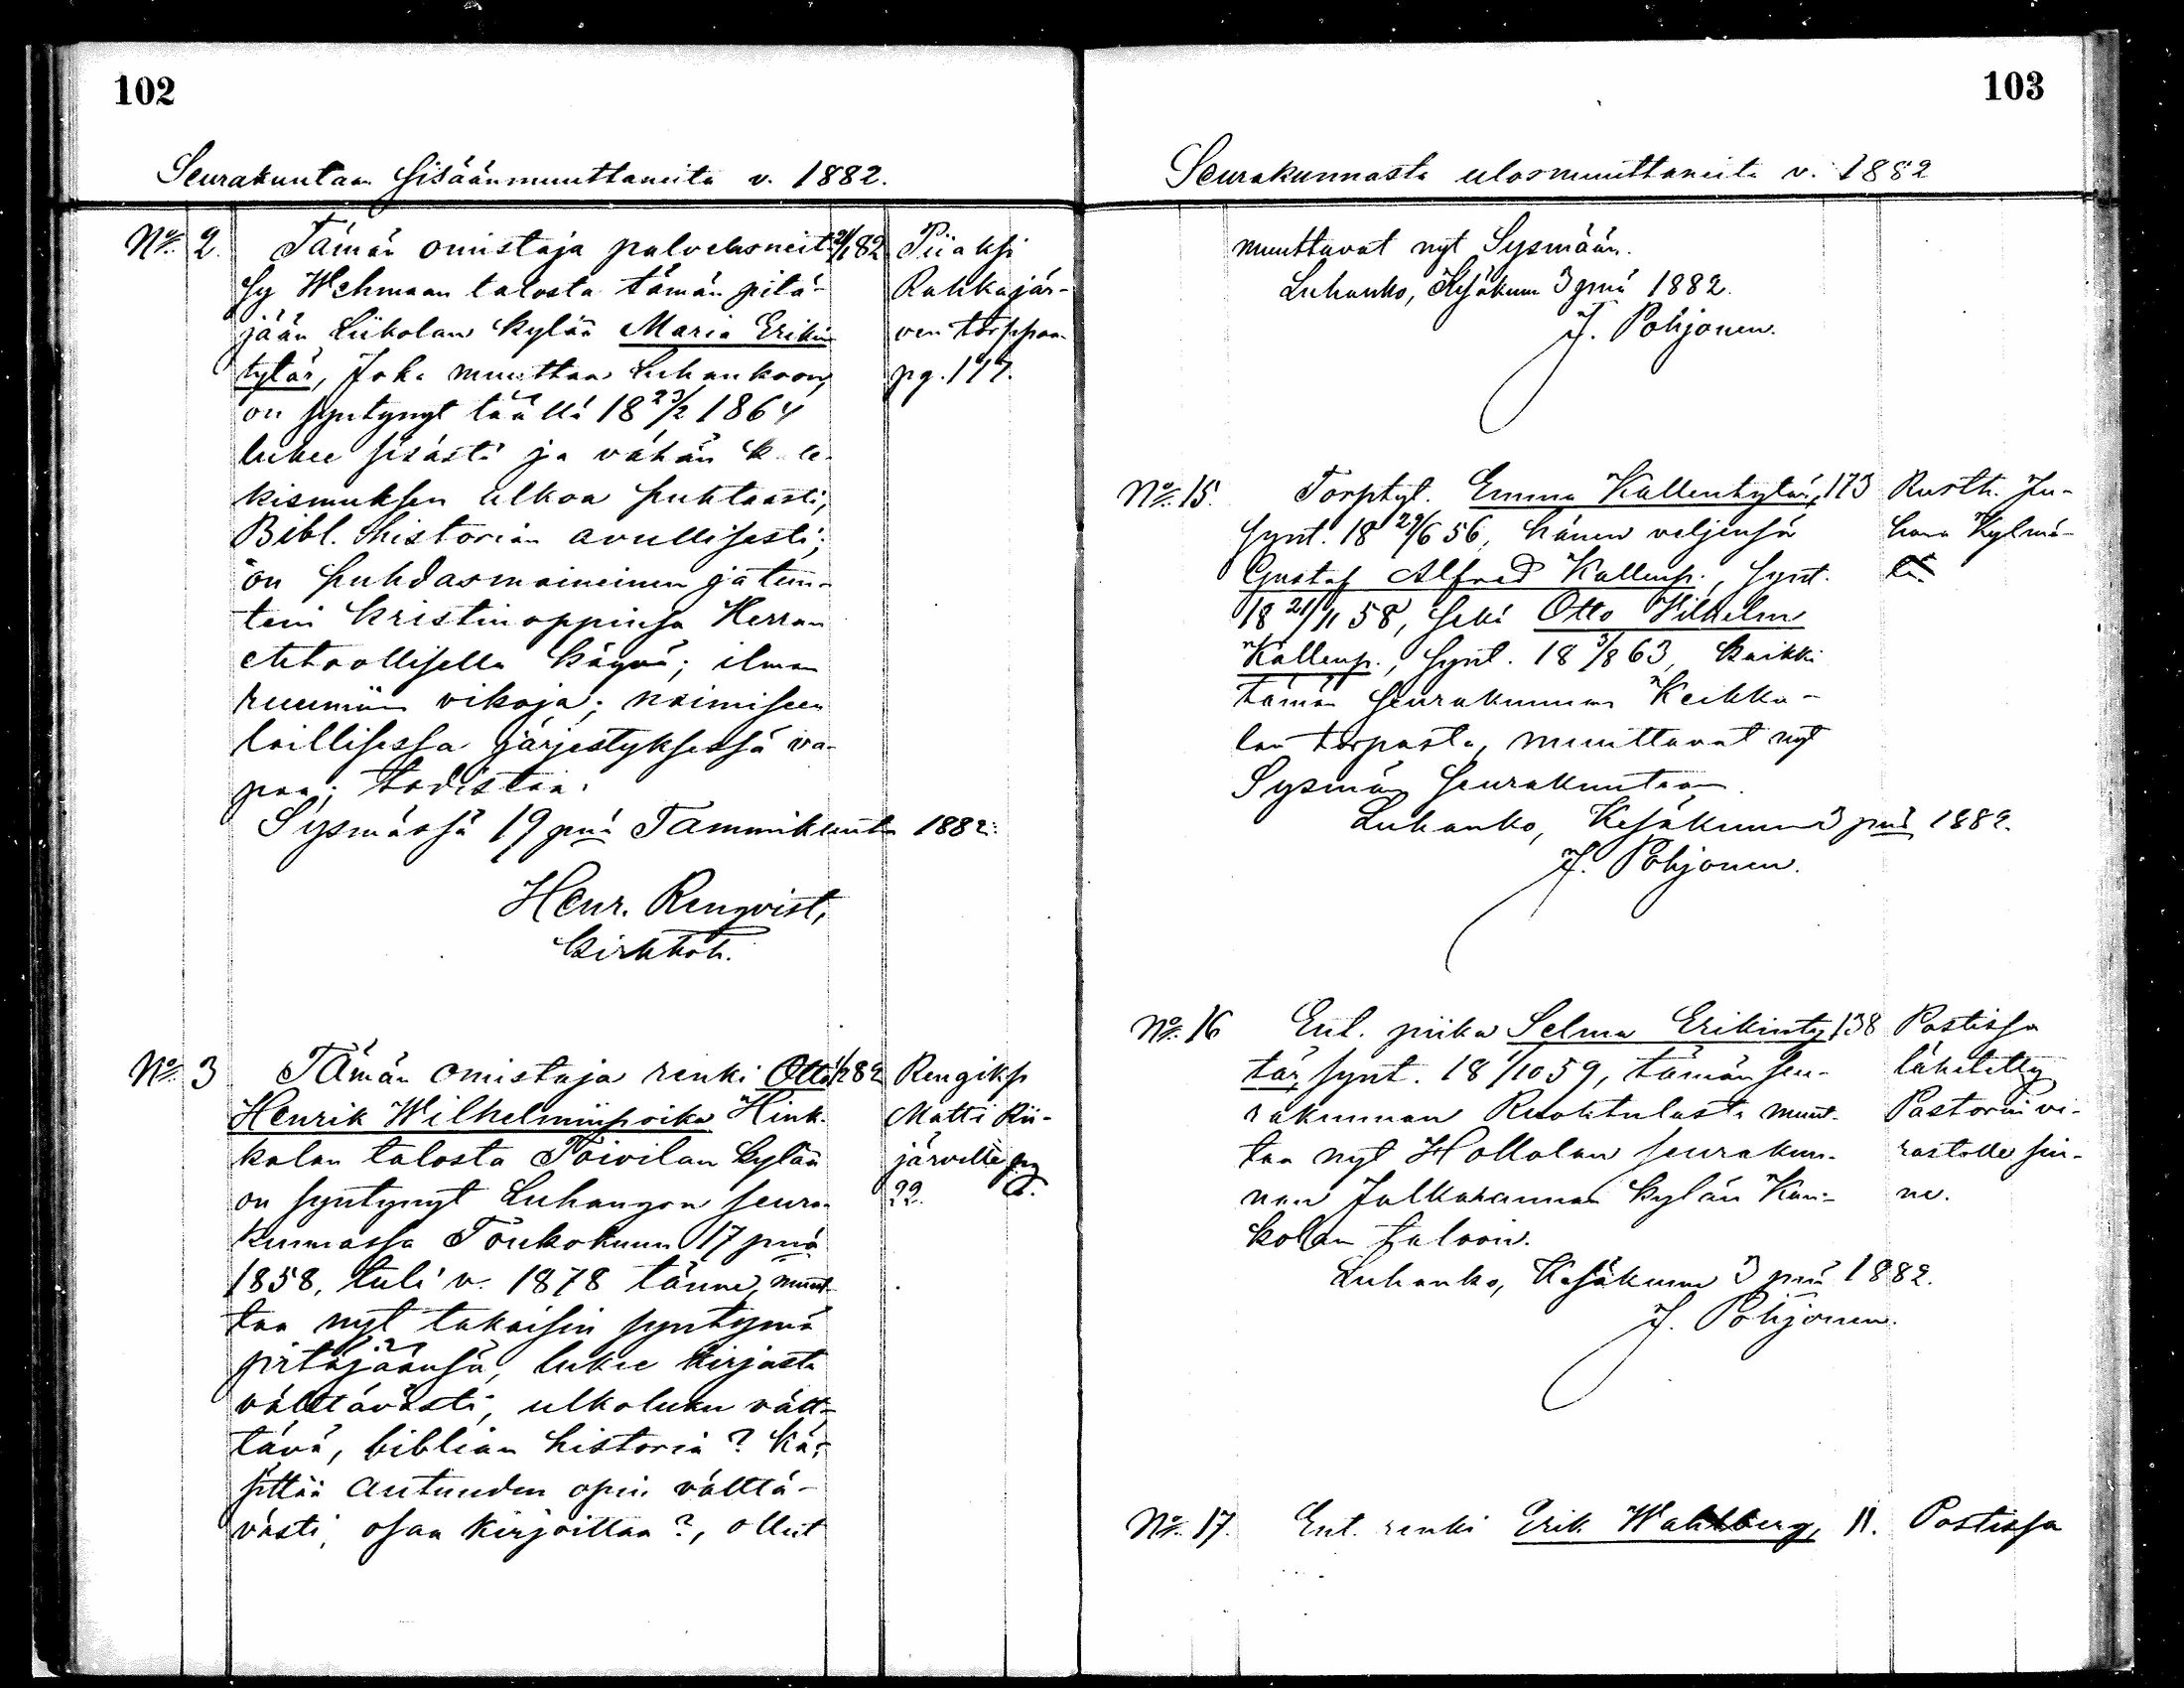 102
Seurakuntaan sisäänmuuttaneita v. 1882.
No 2. Tämän omistaja palvelusneit- 21/1 82 Piiaksi
sy Wehmaan talosta tämän pitä- Rahkajär-
jään Liikolan kylää Maria Erikin ven torppaan
tytär, joka muuttaa Luhankoon, pg. 147.
on syntynyt täällä 18 23/2 1864
lukee sisästi ja vähän k te-
kismuksen ulkoa puhtaasti,
Bibl. historian avullisesti;
on puhdasmaineinen ja tun-
tein kristinoppinsa Herran
ehtoollisella käynyt; ilman
ruumiin vikoja; naimiseen
laillisessa järjestyksessä va-
paa; todistaa.
Sysmässä 19 pnä Tammikuuta 1882:
Henr. Renqvist,
kirkkoh.
No 3 Tämän omistaja renki Otto 1/2 82 Rengiksi
Henrik Wilhelminpoika Hink- Matti Rii-
kalan talosta Toivilan kylää järvelle pg
on syntynyt Luhangon seura- 22.
kunnassa Toukokuun 17 pnä
1858, tuli v. 1878 tänne, muut-
taa nyt takaisin syntymä
pitäjäänsä, lukee kirjasta
välttävästi, ulkoluku vält-
tävä, biblian historia ? kä-
sittää autuuden opin välttä-
västi, osaa kirjoittaa ?, ollut
103
Seurakunnasta ulosmuuttaneita v. 1882
muuttavat nyt Sysmään.
Luhanko, Kesäkuun 3 pnä 1882.
J. Pohjonen.
No 15. Torptyt. Emma Kallentytär, 173 Rusth. Ju-
synt. 18 29/6 56, hänen veljensä hana Kylmä-
Gustaf Alfred Kallenp., synt. lä.
18 21/11 58, sekä Otto Vilhelm
Kallenp., synt. 18 3/8 63, kaikki
tämän seurakunnan Keikka-
lan torpasta, muuttavat nyt
Sysmän seurakuntaan.
Luhanko, Kesäkuun 3 pnä 1882.
J. Pohjonen.
No 16 Ent. piika Selma Erikinty- 138 Postissa
tär, synt. 18 1/10 59, tämän seu- lähetetty
rakunnan Ruohtulasta muut- Pastorin vi-
taa nyt Hollolan seurakun- rastolle sin-
nan Jalkarannan kylän Kan- ne.
kolan taloon.
Luhanko, Kesäkuun 3 pnä 1882.
J. Pohjonen.
No 17. Ent. renki Erik Wahlberg, 11. Postissa